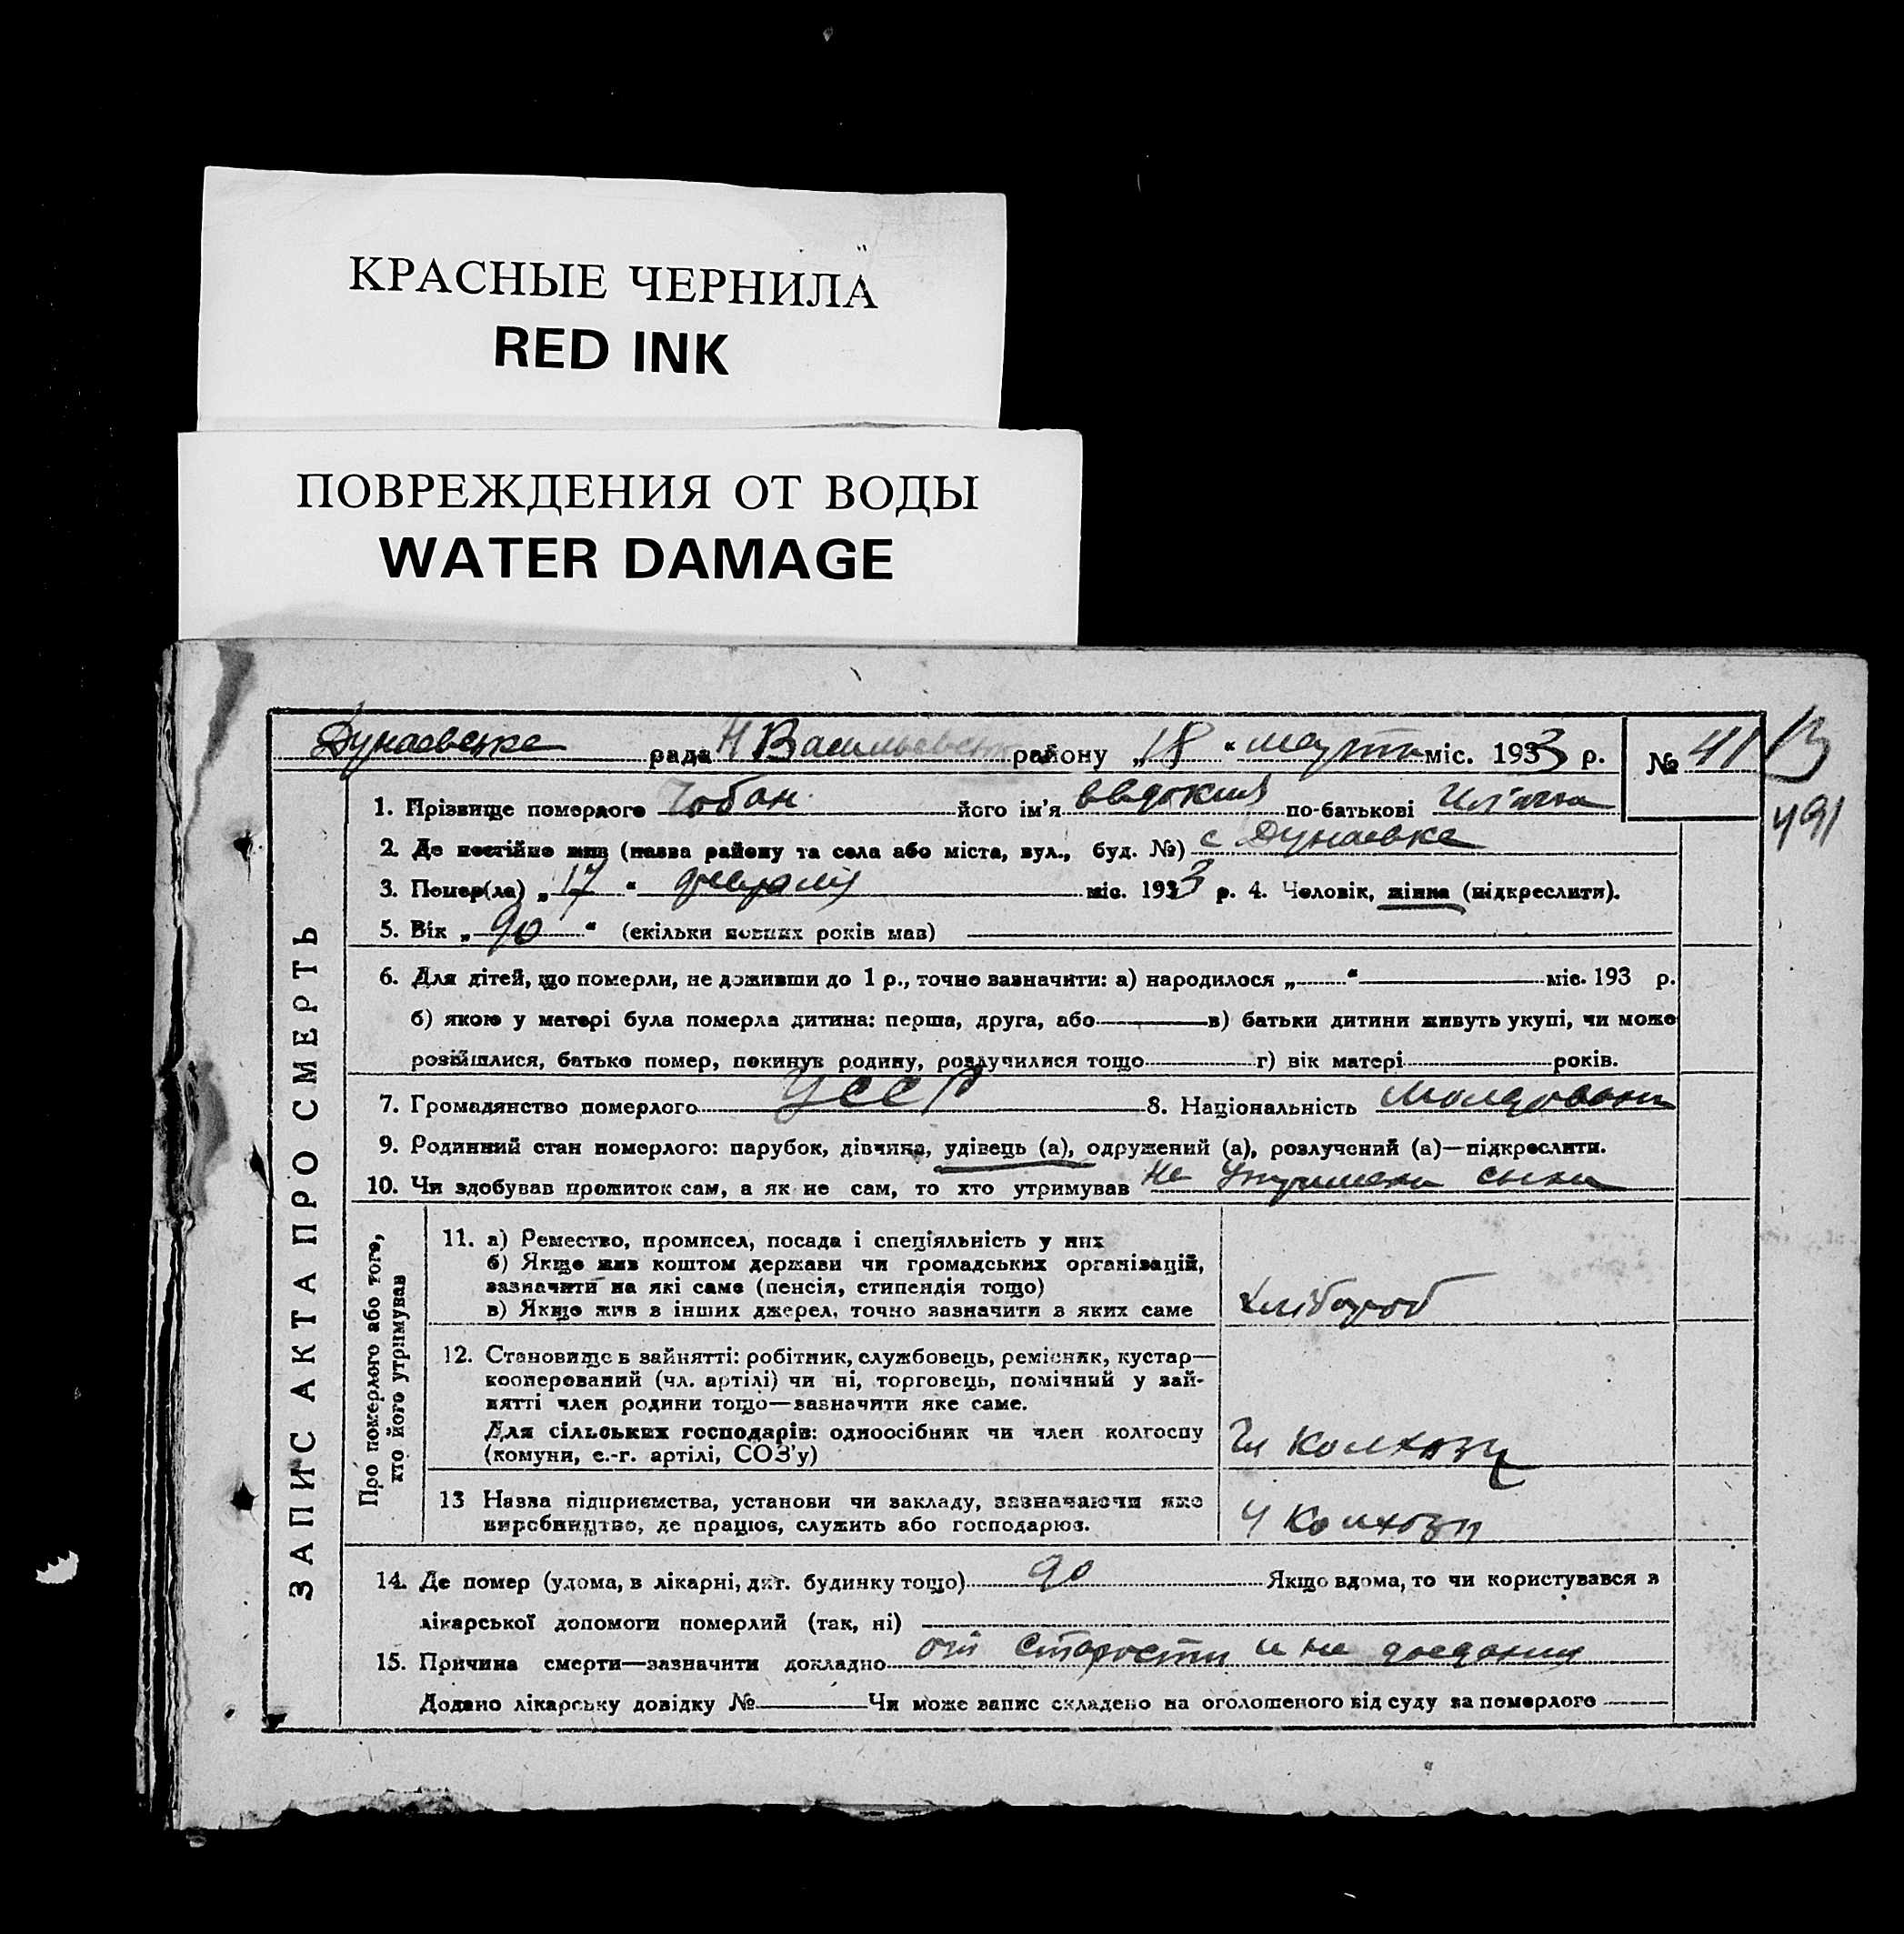 КРАСНЫЕ ЧЕРНИЛА
RED INK
ПОВРЕЖДЕНИЯ ОТ ВОДЫ
WATER DAMAGE
Дунаевське рада Н Васильевськ району „18“ марта міс. 1933 р. № 41 13
491
ЗАПИС АКТА ПРО СМЕРТЬ
1. Прізвище померлого Чобан його ім'я Евдокия по-батькові
2. Де постійно жив (назва району та села або міста, вул., буд. №) с Дунаевка
3. Помер(ла) „17“ февраля міс. 1933 р. 4. Человік, жінка (підкреслити).
5. Вік „90“ (скільки повних років мав)
6. Для дітей, що померли, не доживши до 1 р., точно зазначити: а) народилося „ “ міс. 193 р.
б) якою у матері була померла дитина: перша, друга, або в) батьки дитини живуть укупі, чи може
розійшлися, батько помер, покинув родину, розлучилися тощо г) вік матері років.
7. Громадянство померлого УССР 8. Національність Молдован
9. Родинний стан померлого: парубок, дівчина, удівець (а), одружений (а), розлучений (а)—підкреслити.
10. Чи здобував прожиток сам, а як не сам, то хто утримував На утримани сына
Про померлого або того,
хто його утримував
11. а) Ремество, промисел, посада і спеціяльність у них
б) Якщо жив коштом держави чи громадських організацій,
зазначити на які саме (пенсія, стипендія тощо)
в) Якщо жив в інших джерел, точно зазначити з яких саме
хлібороб
12. Становище в зайнятті: робітник, службовець, ремісник, кустар—
кооперований (чл. артілі) чи ні, торговець, помічний у зай-
нятті член родини тощо—зазначити яке саме.
Для сільських господарів: одноосібник чи член колгоспу
(комуни, с.-г. артілі, СОЗ'у)
Чл колхозу
13 Назва підприємства, установи чи закладу, зазначаючи яке
виробництво, де працює, служить або господарює.
У колхозі
14. Де помер (удома, в лікарні, дит. будинку тощо) 90 Якщо вдома, то чи користувався з
лікарської допомоги померлий (так, ні)
15. Причина смерти—зазначити докладно от старости и не доедания
Додано лікарську довідку № Чи може запис складено на оголошеного від суду за померлого